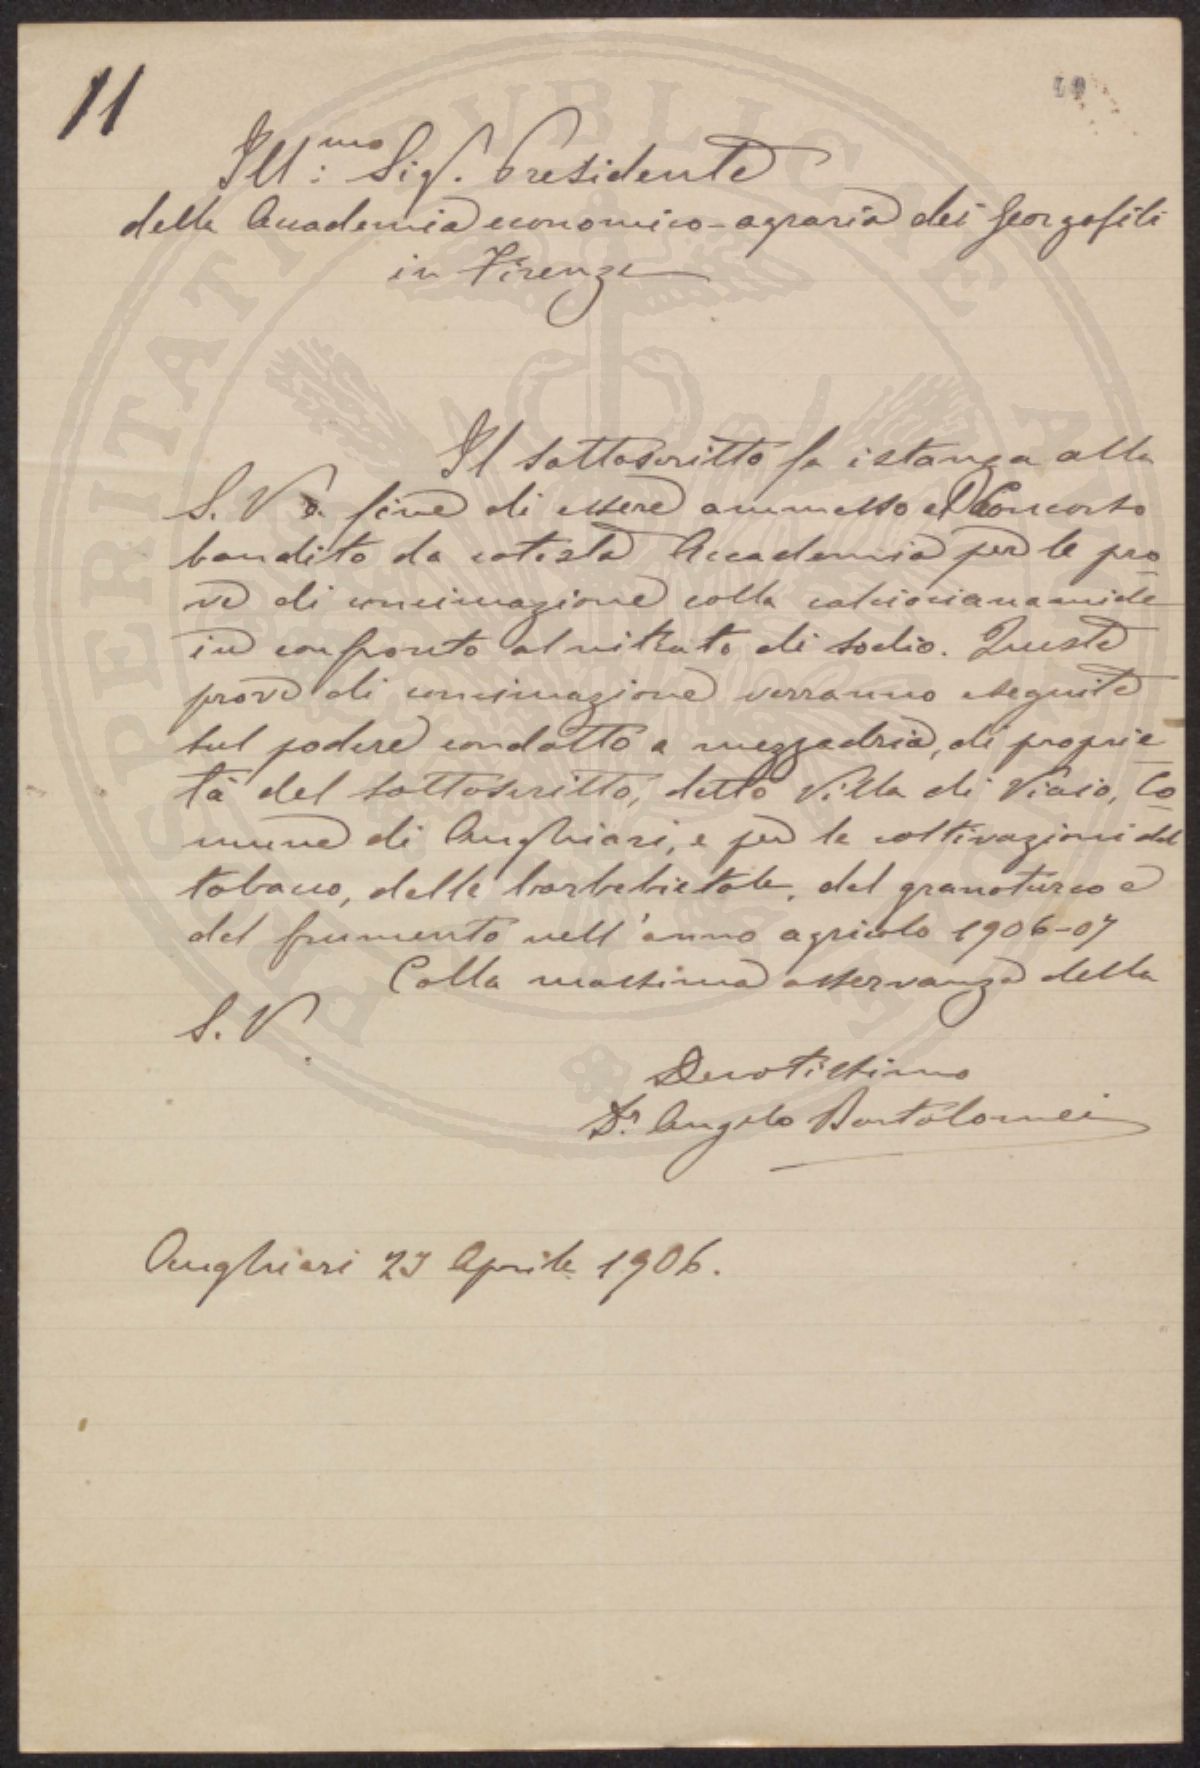 11
Ill:mo Sig. Presidente
della Accademia economico-agraria dei Georgofili
in Firenze
Il sottoscritto fa istanza alla
S. V. a fine di essere ammesso al Concorso
bandito da cotesta Accademia per le pro
ve di concimazione colla calciocianamide
in confronto al nitrato di sodio. Queste
prove di concimazione verranno eseguite
sul podere condotto a mezzadria, di proprie
tà del sottoscritto, detto Villa di Viaio, Co
mune di Anghiari, e per le coltivazioni del
tabacco, delle barbebietole, del granoturco e
del frumento nell'anno agricolo 1906-07
Colla massima osservanza della
S. V.
Devotissimo
Dr. Angelo Bartolomei
Anghiari 23 Aprile 1906.
PROSPERITATI PUBLICAE AUGENDAE